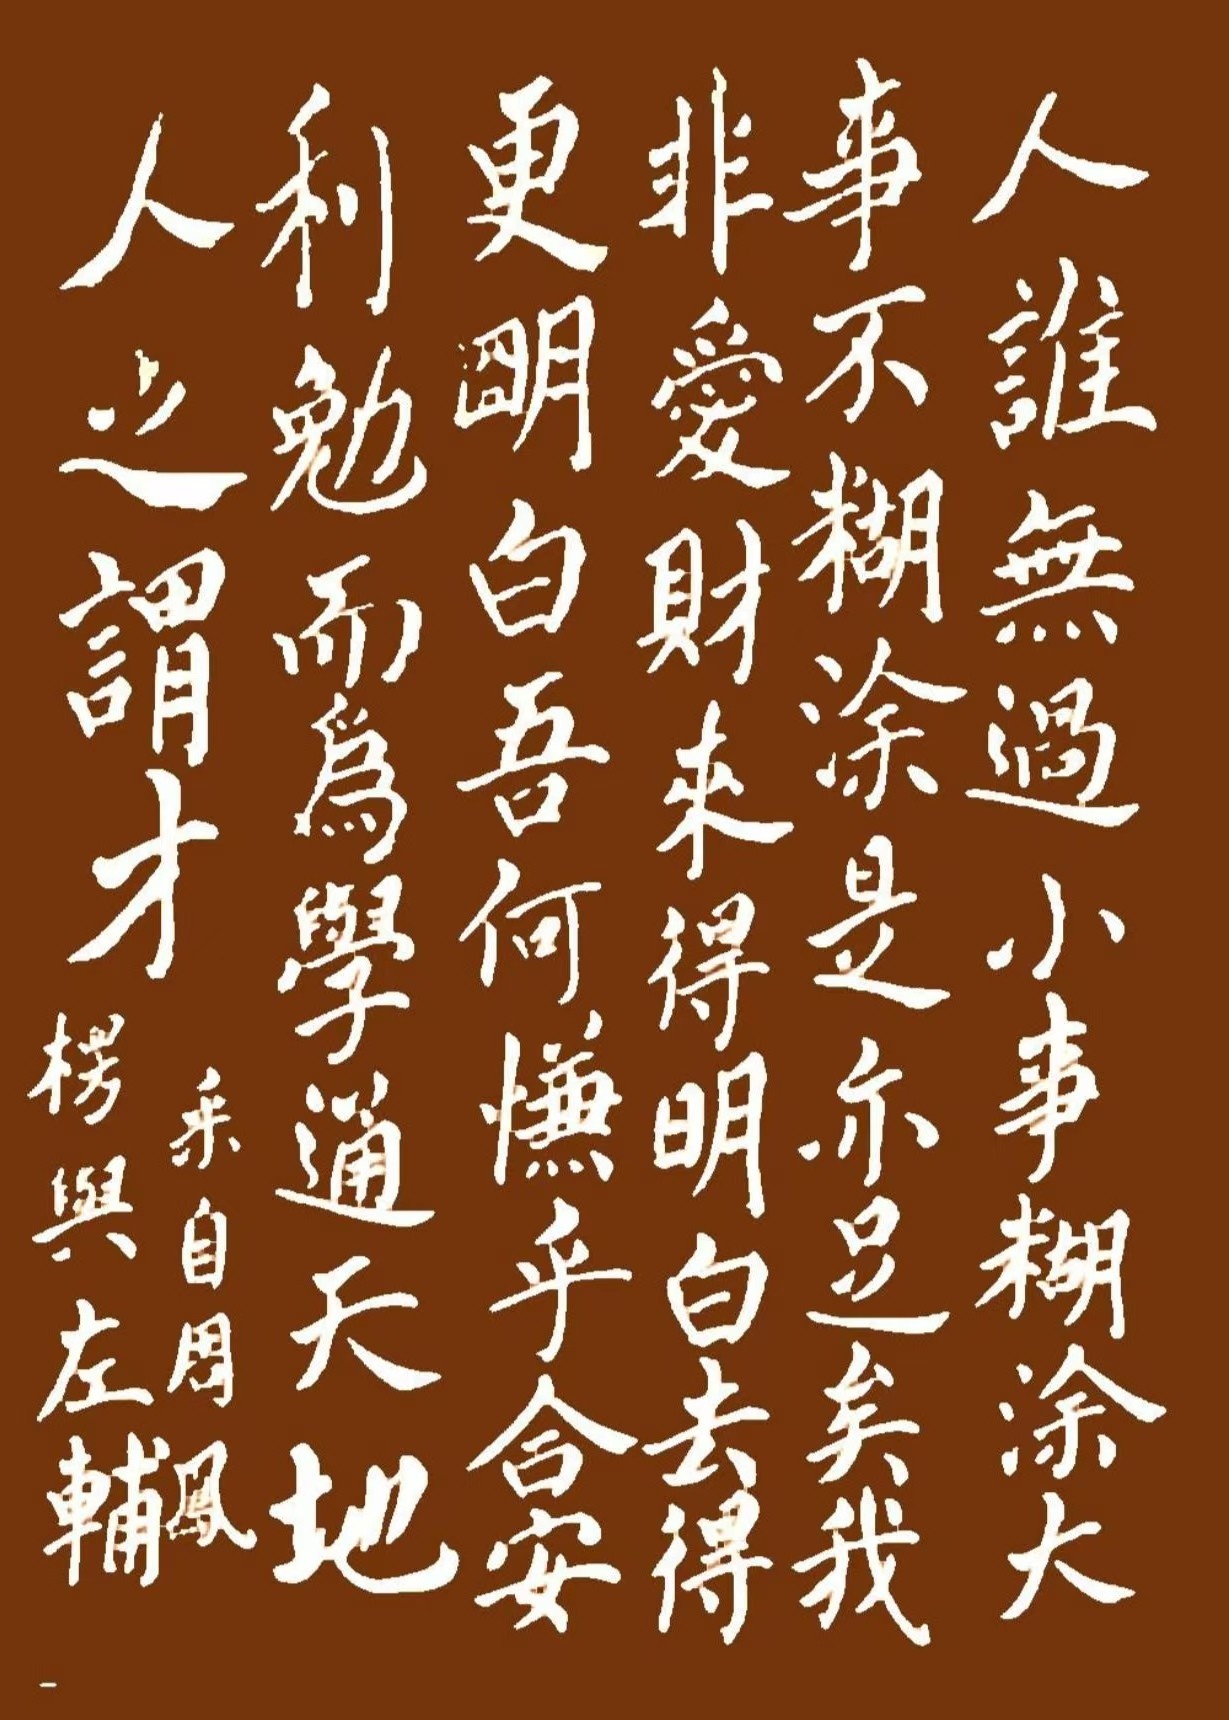 人誰無過小事糊涂大
事不糊涂是亦足矣我
非愛財來得明白去得
更明白吾何慊乎合安
利勉而為學通天地
人之謂才
采自周鳳
楞與左輔